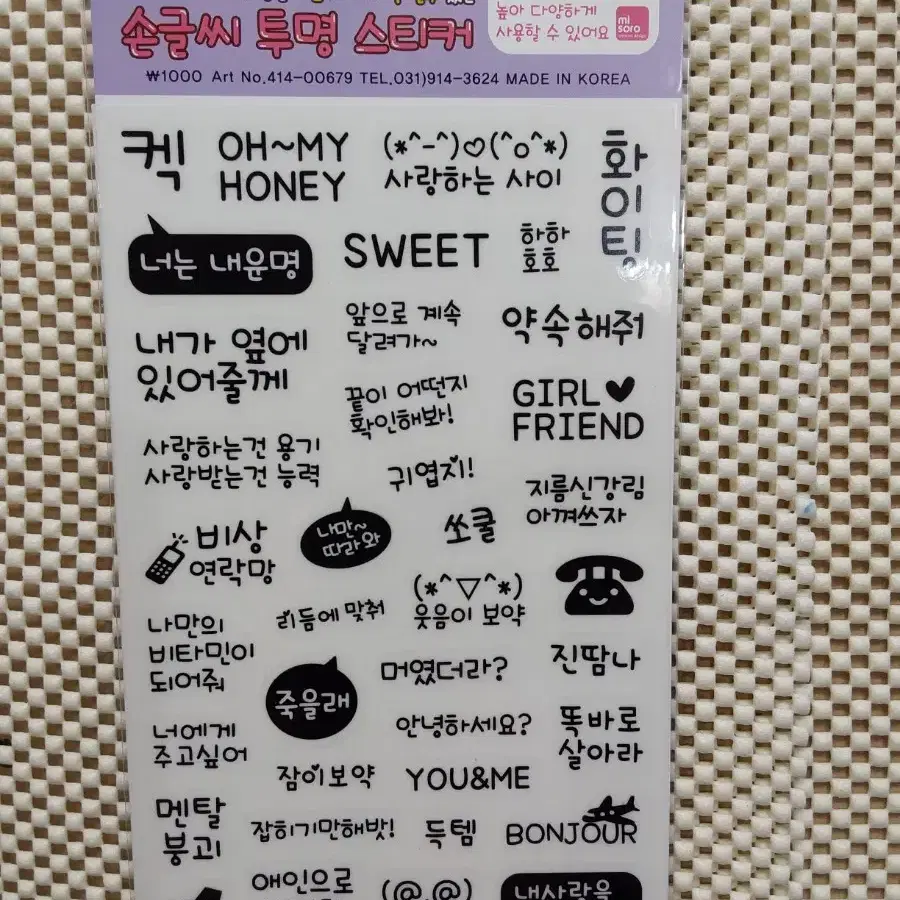 손글씨 투명 스티커
높아 다양하게
사용할 수 있어요
mi
soro
₩1000 Art No.414-00679 TEL.031)914-3624 MADE IN KOREA
켁
OH~MY
HONEY
(*^-^)♡(^o^*)
사랑하는 사이
화이팅
너는 내운명
SWEET
하하
호호
내가 옆에
있어줄께
앞으로 계속
달려가~
약속해줘
끝이 어떤지
확인해봐!
GIRL♥
FRIEND
사랑하는건 용기
사랑받는건 능력
귀엽지!
지름신강림
아껴쓰자
비상
연락망
나만~
따라와
쏘쿨
(*^▽^*)
웃음이 보약
리듬에 맞춰
나만의
비타민이
되어줘
죽을래
머였더라?
진땀나
너에게
주고싶어
안녕하세요?
똑바로
살아라
잠이보약
YOU&ME
멘탈
붕괴
잡히기만해밧!
득템
BONJOUR
애인으로
(@.@)
내사랑을